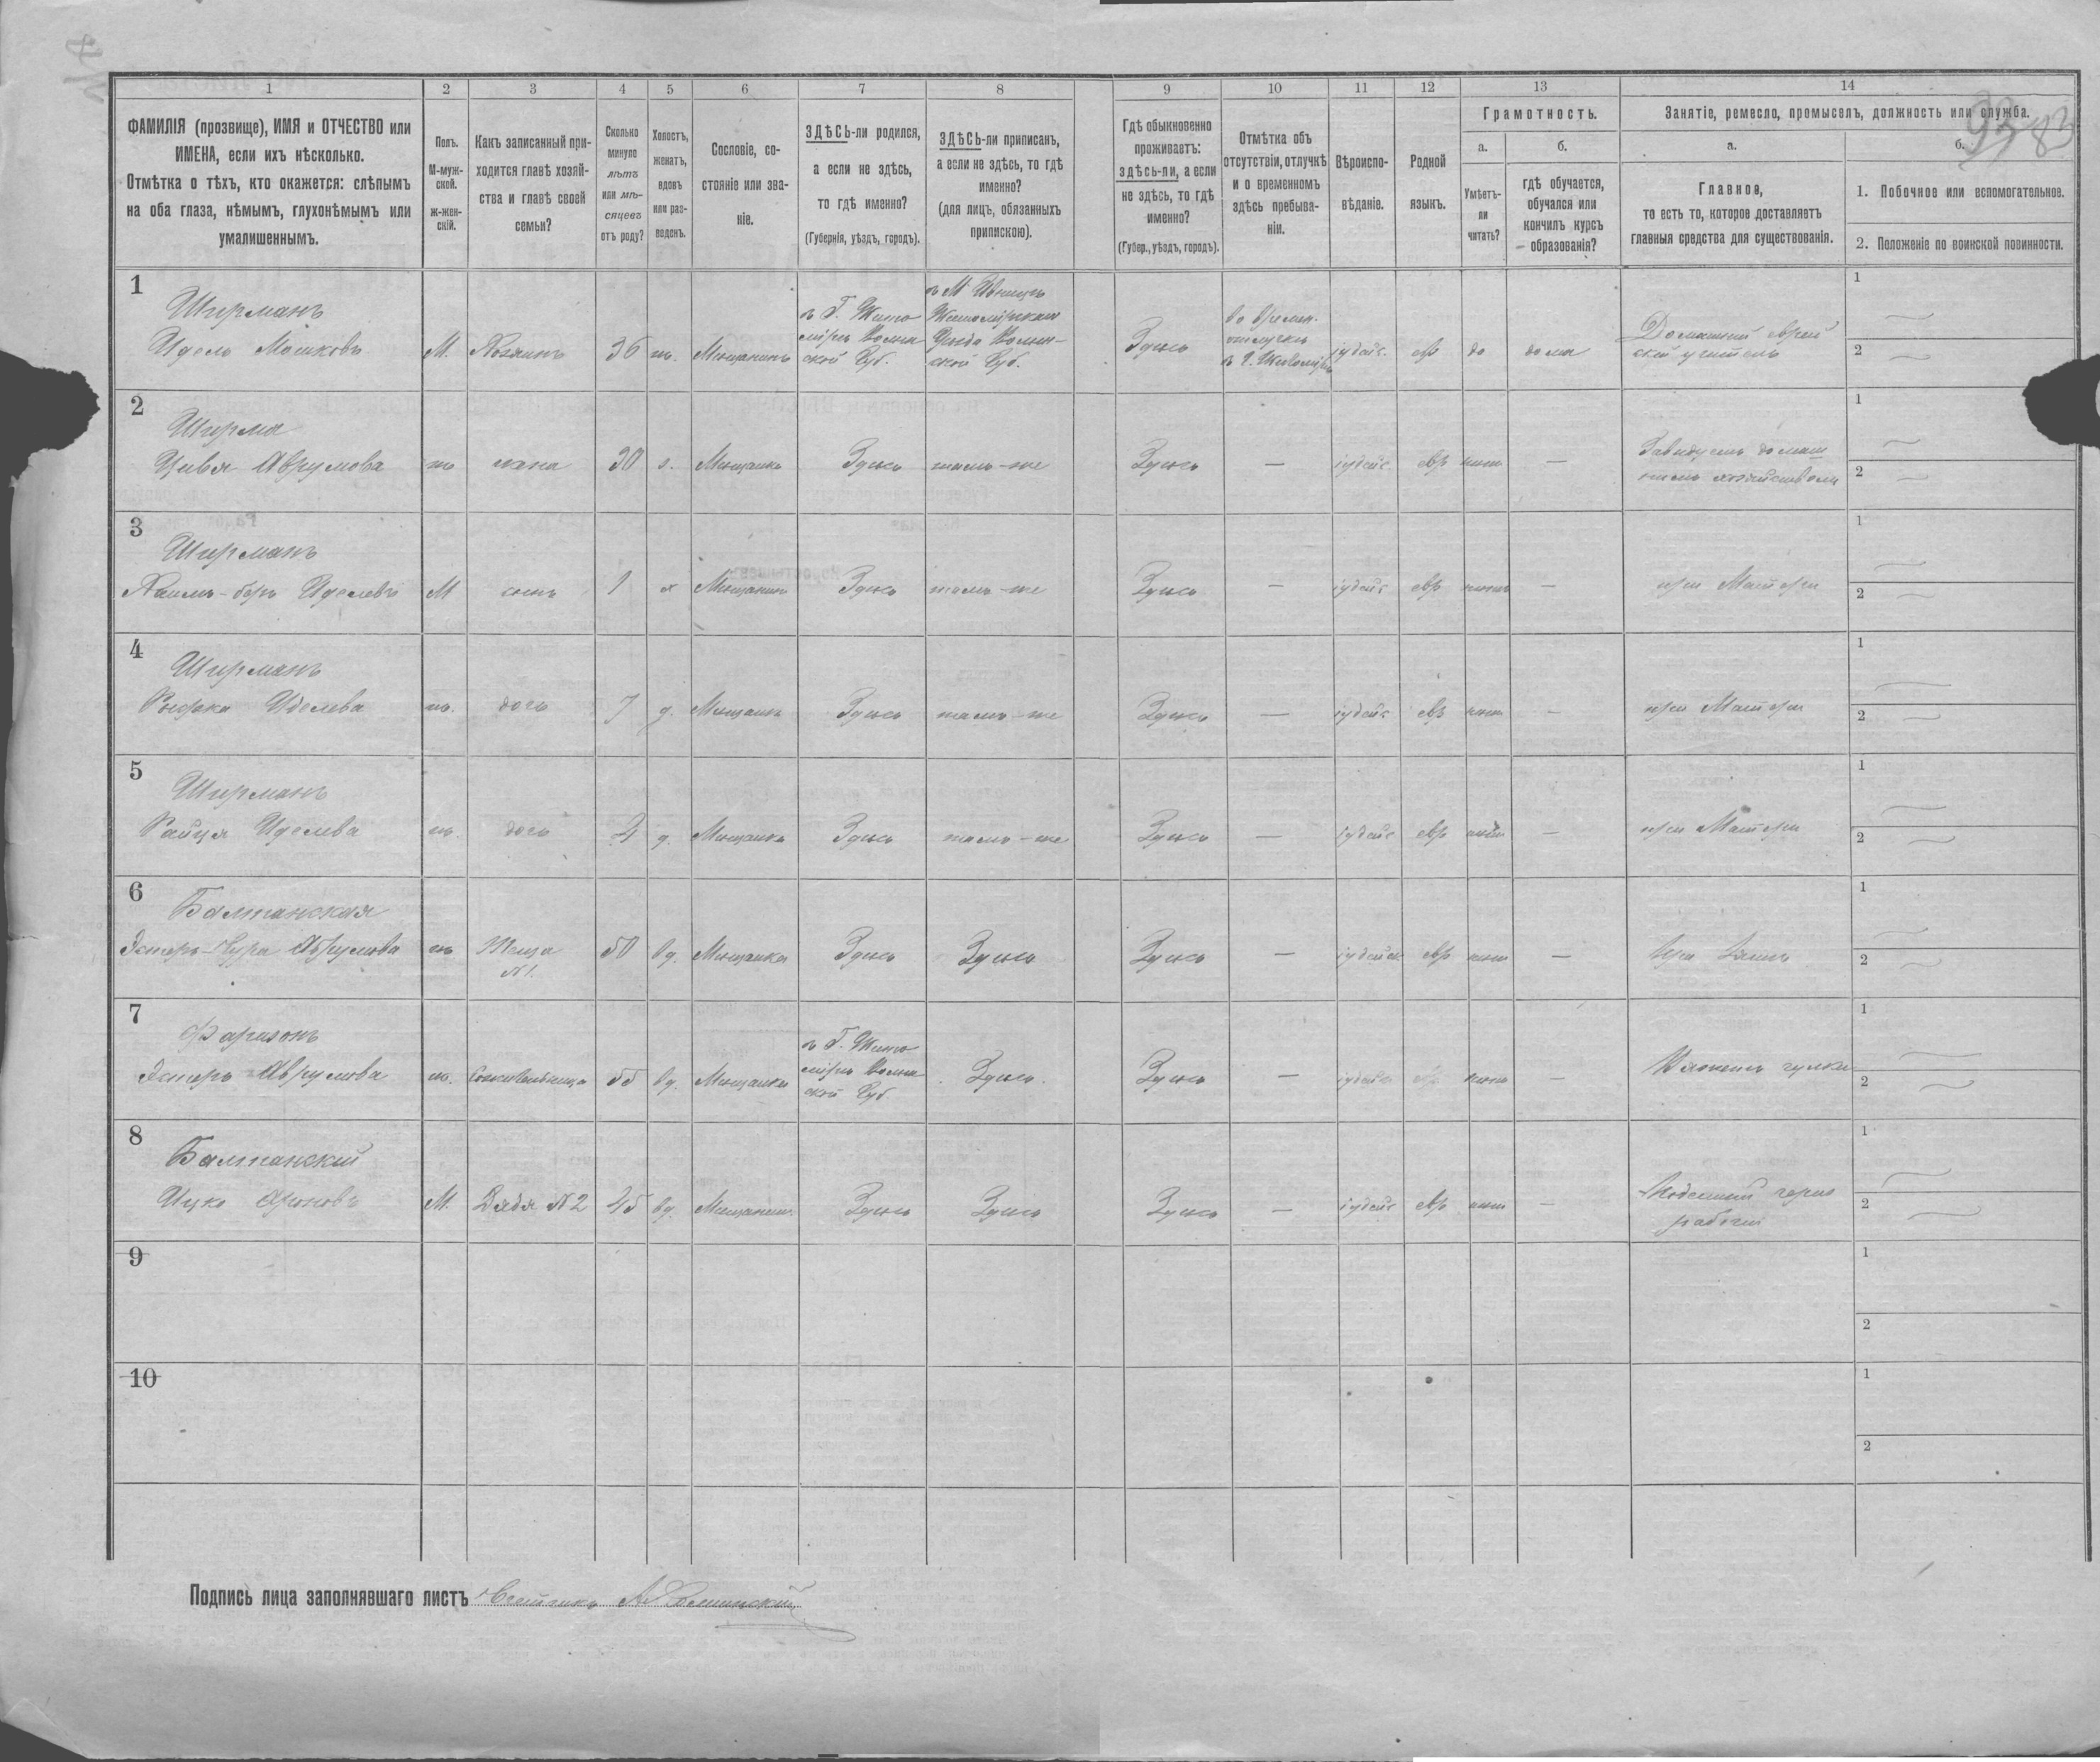 93 83
1 2 3 4 5 6 7 8 9 10 11 12 13 14
ФАМИЛІЯ (прозвище), ИМЯ и ОТЧЕСТВО или ИМЕНА, если ихъ нѣсколько.
Отмѣтка о тѣхъ, кто окажется: слѣпымъ на оба глаза, нѣмымъ, глухонѣмымъ или умалишеннымъ.
Полъ.
М-мужской.
ж-женскій.
Какъ записанный приходится главѣ хозяйства и главѣ своей семьи?
Сколько минуло лѣтъ или мѣсяцевъ отъ роду?
Холостъ, женатъ, вдовъ или разведенъ.
Сословіе, состояніе или званіе.
ЗДѢСЬ-ли родился, а если не здѣсь, то гдѣ именно?
(Губернія, уѣздъ, городъ).
ЗДѢСЬ-ли приписанъ, а если не здѣсь, то гдѣ именно?
(для лицъ, обязанныхъ припискою).
Гдѣ обыкновенно проживаетъ: здѣсь-ли, а если не здѣсь, то гдѣ именно?
(Губер., уѣздъ, городъ).
Отмѣтка объ отсутствіи, отлучкѣ и о временномъ здѣсь пребываніи.
Вѣроисповѣданіе.
Родной языкъ.
Грамотность.
а.
Умѣетъ-ли читать?
б.
гдѣ обучается, обучался или кончилъ курсъ образованія?
Занятіе, ремесло, промыселъ, должность или служба.
а.
Главное,
то есть то, которое доставляетъ главныя средства для существованія.
б.
1. Побочное или вспомогательное.
2. Положеніе по воинской повинности.
1 Ширманъ
Идель Мошковъ М. Хозяинъ 36 ж. Мещанинъ
въ Г. Житомірѣ Волынской Губ.
въ М Ивницѣ Житомірскаго Уѣзда Волынской Губ.
Здѣсь
во времен. отлучкѣ въ Г. Житомірѣ
іудейс. евр да дома
Домашній еврейскій учитель
1
2
2 Ширма
Цивья Аврумова ж жена 30 з. Мещанка Здѣсь тамъ-же Здѣсь — іудейс евр нѣтъ —
Завѣдуетъ домашнимъ хозяйствомъ
1
2
3 Ширманъ
Хаимъ-беръ Иделевъ М сынъ 1 х Мещанинъ Здѣсь тамъ-же Здѣсь — іудейс евр нѣтъ — при Матери
1
2
4 Ширманъ
Иделева ж. дочь 7 д. Мещанка Здѣсь тамъ-же Здѣсь — іудейс евр нѣтъ — при Матери
1
2
5 Ширманъ
Райця Иделева ж. дочь д. Мещанка Здѣсь тамъ-же Здѣсь — іудейс евр нѣтъ — при Матери
1
2
6 Балтанская
Аврумова ж Теща №1. 50 вд. Мещанка Здѣсь Здѣсь Здѣсь — іудейск евр нѣтъ — При Зятѣ
1
2
7 Фаризонъ
Эстеръ Аврумова ж. 55 вд. Мещанка
въ Г. Житомірѣ Волынской Губ
Здѣсь. Здѣсь — іудейс евр нѣтъ —
Вяжетъ чулки
1
2
8 Балтанский
Ицко М. Дядя №2 45 вд. Мещанинъ Здѣсь Здѣсь Здѣсь — іудейс евр нѣтъ —
Поденный черно рабочій
1
2
9
1
2
10
1
2
Подпись лица заполнявшаго листъ Счетчикъ